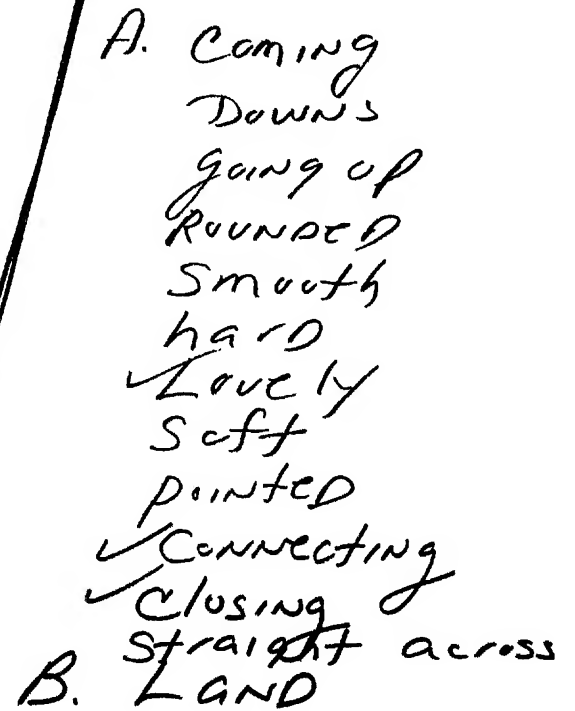 A. Coming
Downs
going up
ROUNDED
Smooth
harD
✓ Lovely
Soft
pointeD
✓ Connecting
✓ Closing
straight across
B. LAND